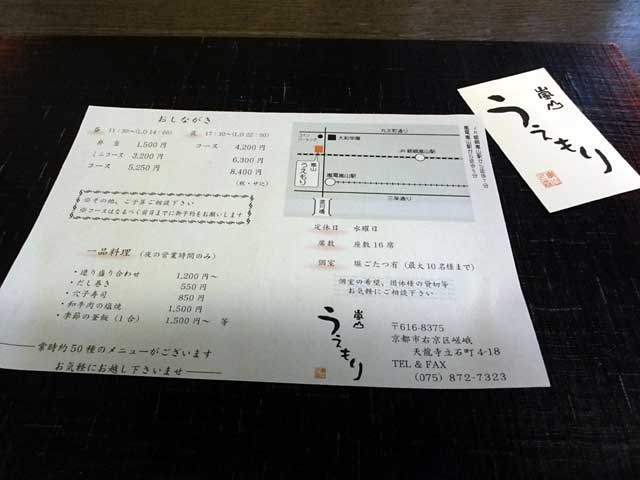 おしながき
昼 11:30~(L.O 14:00)
弁当 1,500円
ミニコース 3,200円
コース 5,250円
夜 17:30~(L.O 22:00)
コース 4,200円
6,300円
8,400円
※その他、ご予算ご相談下さい
※コースはなるべく前日までに御予約をお願いします
一品料理 (夜の営業時間のみ)
・造り盛り合わせ 1,200円~
・だし巻き 550円
・穴子寿司 850円
・和牛肉の塩焼 1,500円
・季節の釜飯(1合) 1,500円~ 等
常時約50種のメニューがございます
お気軽にお越し下さいませ
丸太町通り
コイン
パーキング
大和学園
嵐山
うえもり
JR嵯峨嵐山駅
嵐電嵐山駅
三条通り
渡月橋
定休日 水曜日
席数 座数16席
個室 堀ごたつ有 (最大10名様まで)
個室の希望、団体様の貸切等
お気軽にご相談下さい
嵐山
うえもり
〒616-8375
京都市右京区嵯峨
天龍寺立石町4-18
TEL & FAX
(075) 872-7323
嵐山
うえもり